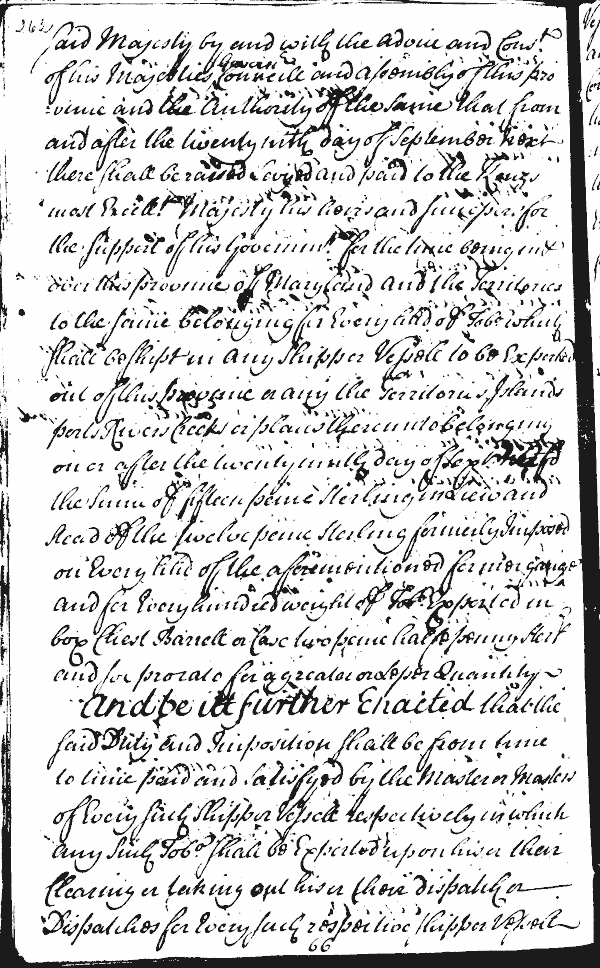 said Majesty by and with the advice and Const.
Govern.
of his Majesties Councill and assembly of this pro
vince and the Authority of the same that from
and after the twenty ninth day of September next
there shall be raised Levied and paid to the Kings
most Excell.t Majesty his heirs and successors for
the support of his Governm.t for the time being in &
over this province of Maryland and the Territories
to the same belonging for Every hhd of Tobo which
shall be shipt in any ship or Vessell to be Exported
out of this province or any the Territories, Islands
ports Rivers Creeks or places thereunto belonging
on or after the twenty ninth day of Sept.
the summ of fifteen pence sterling in Liew and
stead of the twelve pence sterling formerly Imposed
on Every hhd of the aforementioned former gauge
and for Every hundred weight of Tobo Exported in
box Chest Barrell or Case two pence halfe penny sterl
and so pro rato for a greater or lesser Quantity
And be itt further Enacted that the
said Duty and Imposition shall be from time
to time paid and satisfyed by the Master or Masters
of Every such ship or Vessell respectively in which
any such Tobo shall be Exported upon his or their
Clearing or taking out his or their dispatch or
Dispatches for Every such respective ship or Vessell
66